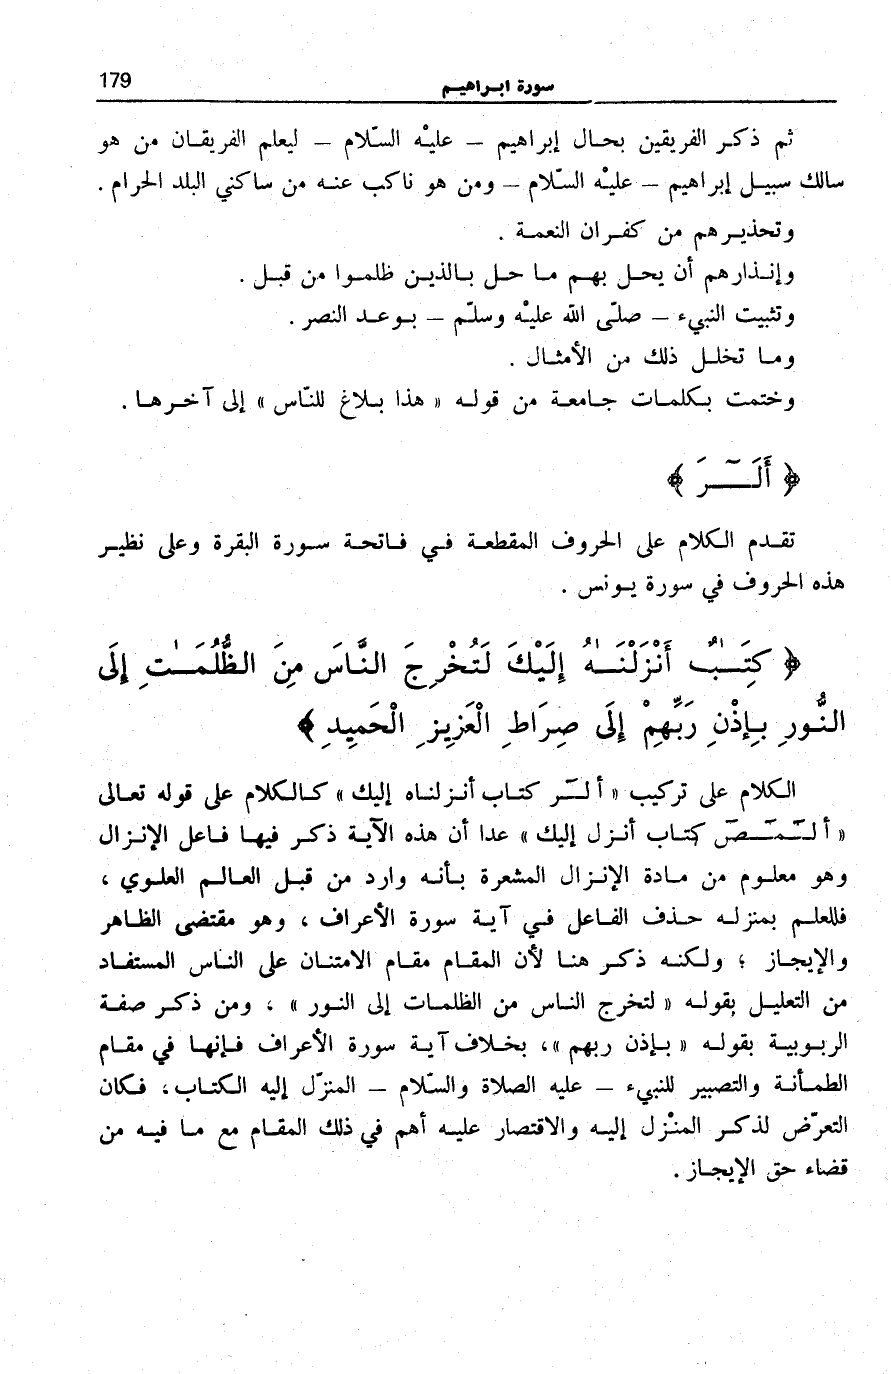 179
سورة ابراهيم
ثم ذكر الفريقين بحال إبراهيم – عليْه السّلام – ليعلم الفريقان من هو
سالك سبيل إبراهيم – عليْه السّلام – ومن هو ناكب عنه من ساكني البلد الحرام .
وتحذيرهم من كفران النعمة .
وإنذارهم أن يحل بهم ما حل بالذين ظلموا من قبل .
وتثبيت النبيء – صلّى الله عليْه وسلّم – بوعد النصر .
وما تخلل ذلك من الأمثال .
وختمت بكلمات جامعة من قوله « هذا بلاغ للنّاس » إلى آخرها .
﴿ أَلَٓرَ ﴾
تقدم الكلام على الحروف المقطعة في فاتحة سورة البقرة وعلى نظير
هذه الحروف في سورة يونس .
﴿ كِتَـٰبٌ أَنْزَلْنَـٰهُ إِلَيْكَ لِتُخْرِجَ النَّاسَ مِنَ الظُّلُمَـٰتِ إِلَى
النُّورِ بِإِذْنِ رَبِّهِمْ إِلَى صِرَاطِ الْعَزِيزِ الْحَمِيدِ ﴾
الكلام على تركيب « ألٓر كتاب أنزلناه إليك » كالكلام على قوله تعالى
« ألٓمٓصٓ كتاب أنزل إليك » عدا أن هذه الآية ذكر فيها فاعل الإنزال
وهو معلوم من مادة الإنزال المشعرة بأنه وارد من قبل العالم العلوي ،
فللعلم بمنزله حذف الفاعل في آية سورة الأعراف ، وهو مقتضى الظاهر
والإيجاز ؛ ولكنه ذكر هنا لأن المقام مقام الامتنان على الناس المستفاد
من التعليل بقوله « لتخرج الناس من الظلمات إلى النور » ، ومن ذكر صفة
الربوبية بقوله « بإذن ربهم »، بخلاف آية سورة الأعراف فإنها في مقام
الطمأنة والتصبير للنبيء – عليه الصلاة والسّلام – المنزّل إليه الكتاب، فكان
التعرّض لذكر المنْزل إليه والاقتصار عليه أهم في ذلك المقام مع ما فيه من
قضاء حق الإيجاز .